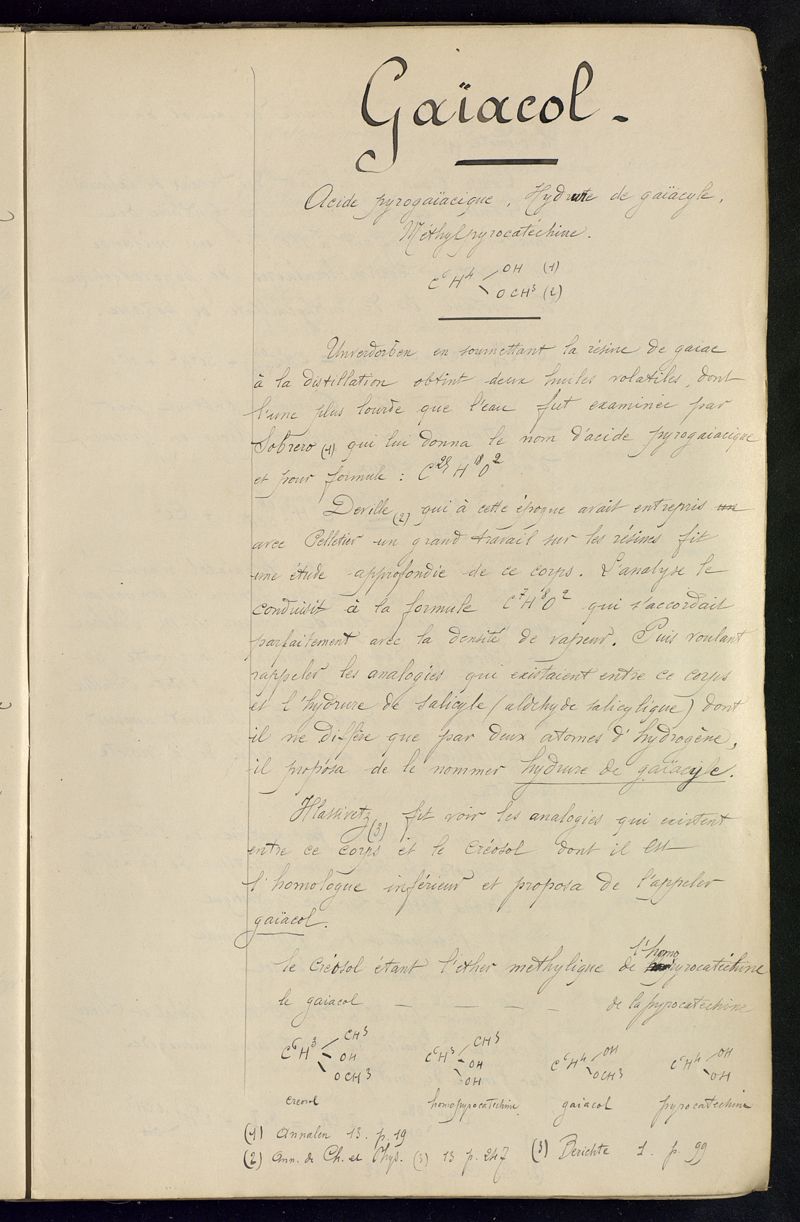 Gaïacol -
Acide pyrogaïacique, Hydrure de gaïacyle,
Méthylpyrocatéchine.
C⁶H⁴ OH (1)
OCH³ (2)
Unverdorben en soumettant la résine de gaiac
à la distillation obtint deux huiles volatiles, dont
l'une plus lourde que l'eau fut examinée par
Sobrero (1) qui lui donna le nom d'acide pyrogaiacique
et pour formule : C²⁸H¹⁸O²
Deville (2) qui à cette époque avait entrepris un
avec Pelletier un grand travail sur les résines fit
une étude approfondie de ce corps. L'analyse le
conduisit à la formule C⁷H⁸O² qui s'accordait
parfaitement avec la densité de vapeur. Puis voulant
rappeler les analogies qui existaient entre ce corps
et l'hydrure de salicyle (aldéhyde salicylique) dont
il ne diffère que par deux atomes d'hydrogène,
il proposa de le nommer hydrure de gaïacyle.
Hlassivetz (3) fit voir les analogies qui existent
entre ce corps et le créosol dont il est
l'homologue inférieur et proposa de l'appeler
gaïacol.
le créosol étant l'éther méthylique de l'homopyrocatéchine
le gaiacol — — — — de la pyrocatéchine
C⁶H³ CH³ OH OCH³ C⁶H³ CH³ OH OH C⁶H⁴ OH OCH³ C⁶H⁴ OH OH
créosol homopyrocatéchine gaiacol pyrocatechine
(1) Annalen 13. p. 19
(2) Ann. de Ch. et Phys. (3) 13 p. 247 (3) Berichte 1. p. 99